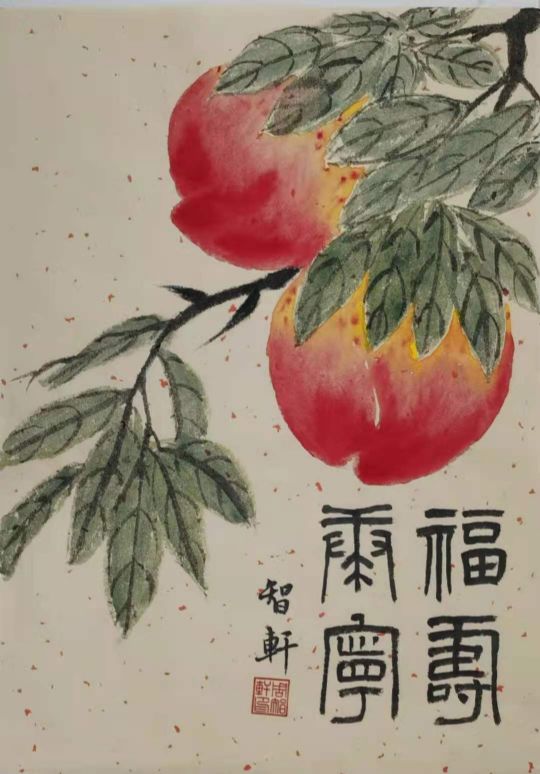 福壽
康寧
智軒